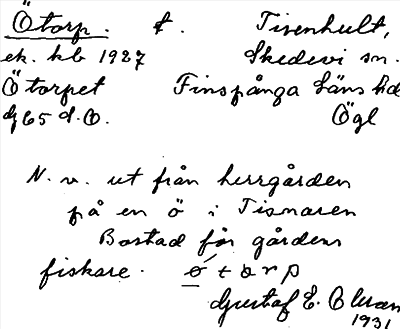 Ötorp. t. Tisenhult,
ek. kb 1927 Skedevi sn.
Ötorpet Finspånga läns hd
Dj 65 S.O. Ögl
N.v. ut från herrgården
på en ö i Tisnaren
Bostad för gårdens
fiskare. ø t o r p
Gustaf E. Olsson
1931